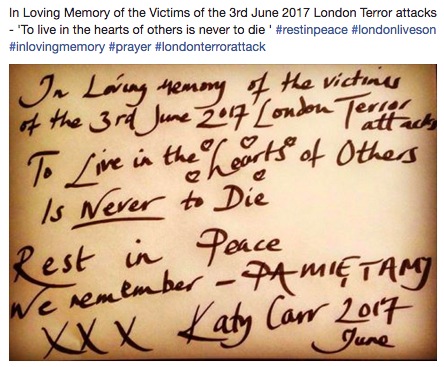 In Loving Memory of the Victims of the 3rd June 2017 London Terror attacks
- 'To live in the hearts of others is never to die ' #restinpeace #londonliveson
#inlovingmemory #prayer #londonterrorattack
In Loving Memory of the victims
of the 3rd June 2017 London Terror
attacks
To Live in the hearts of Others
Is Never to Die
Rest in Peace
We remember - PAMIĘTAMY
XXX Katy Carr 2017
June